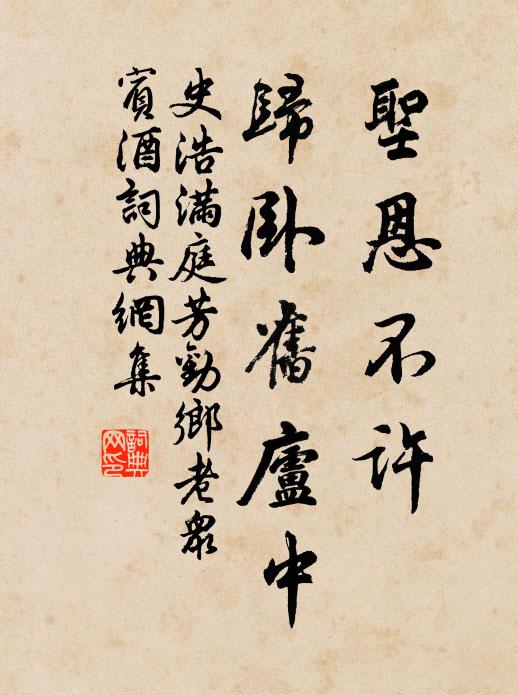 聖恩不許
歸臥舊廬中
史浩滿庭芳勸鄉老眾
賓酒詞典網集
詞典
网印